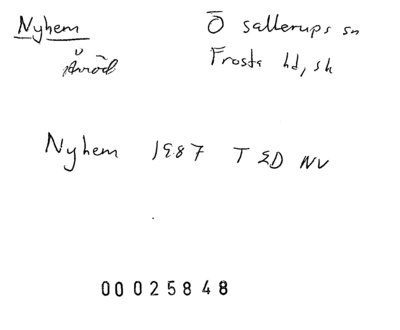 Nyhem
Ö Sallerups sn
Frosta hd, sk
Nyhem 1987 T ED NV
00025848